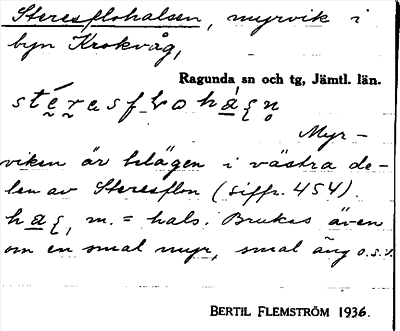 Steresflohalsen, myrvik i
byn Krokvåg,
Ragunda sn och tg, Jämtl. län.
Myr-
viken är belägen i västra de-
len av Steresflon (siffr. 454).
m. = hals. Brukas även
om en smal myr, smal äng o.s.v.
BERTIL FLEMSTRÖM 1936.